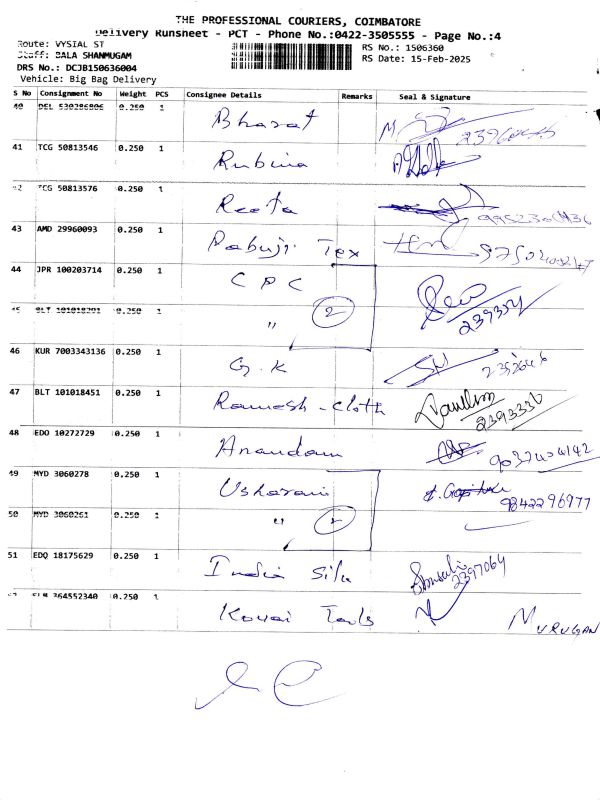 THE PROFESSIONAL COURIERS, COIMBATORE
Delivery Runsheet - PCT - Phone No.:0422-3505555 - Page No.:4
Route: VYSIAL ST RS No.: 1506360
Staff: BALA SHANMUGAM RS Date: 15-Feb-2025
DRS No.: DCJB150636004
Vehicle: Big Bag Delivery
S No Consignment No Weight PCS Consignee Details Remarks Seal & Signature
40 DEL 530286806 0.250 1 Bharat
41 TCG 50813546 0.250 1 Rubina
42 TCG 50813576 0.250 1 Reeta
43 AMD 29960093 0.250 1 Pabuji Tex
44 JPR 100203714 0.250 1 CPC
45 BLT 101018391 0.250 1 " 2 239334
46 KUR 7003343136 0.250 1 G.K
47 BLT 101018451 0.250 1 Ramesh-cloth 2393336
48 EDO 10272729 0.250 1 Anandam 9037404142
49 MYD 3060278 0.250 1 Usharani 9842296977
50 MYD 3060261 0.250 1 " 2
51 EDQ 18175629 0.250 1 India Silk 2397064
52 SLM 364552340 0.250 1 Kovai Tools MURUGAN